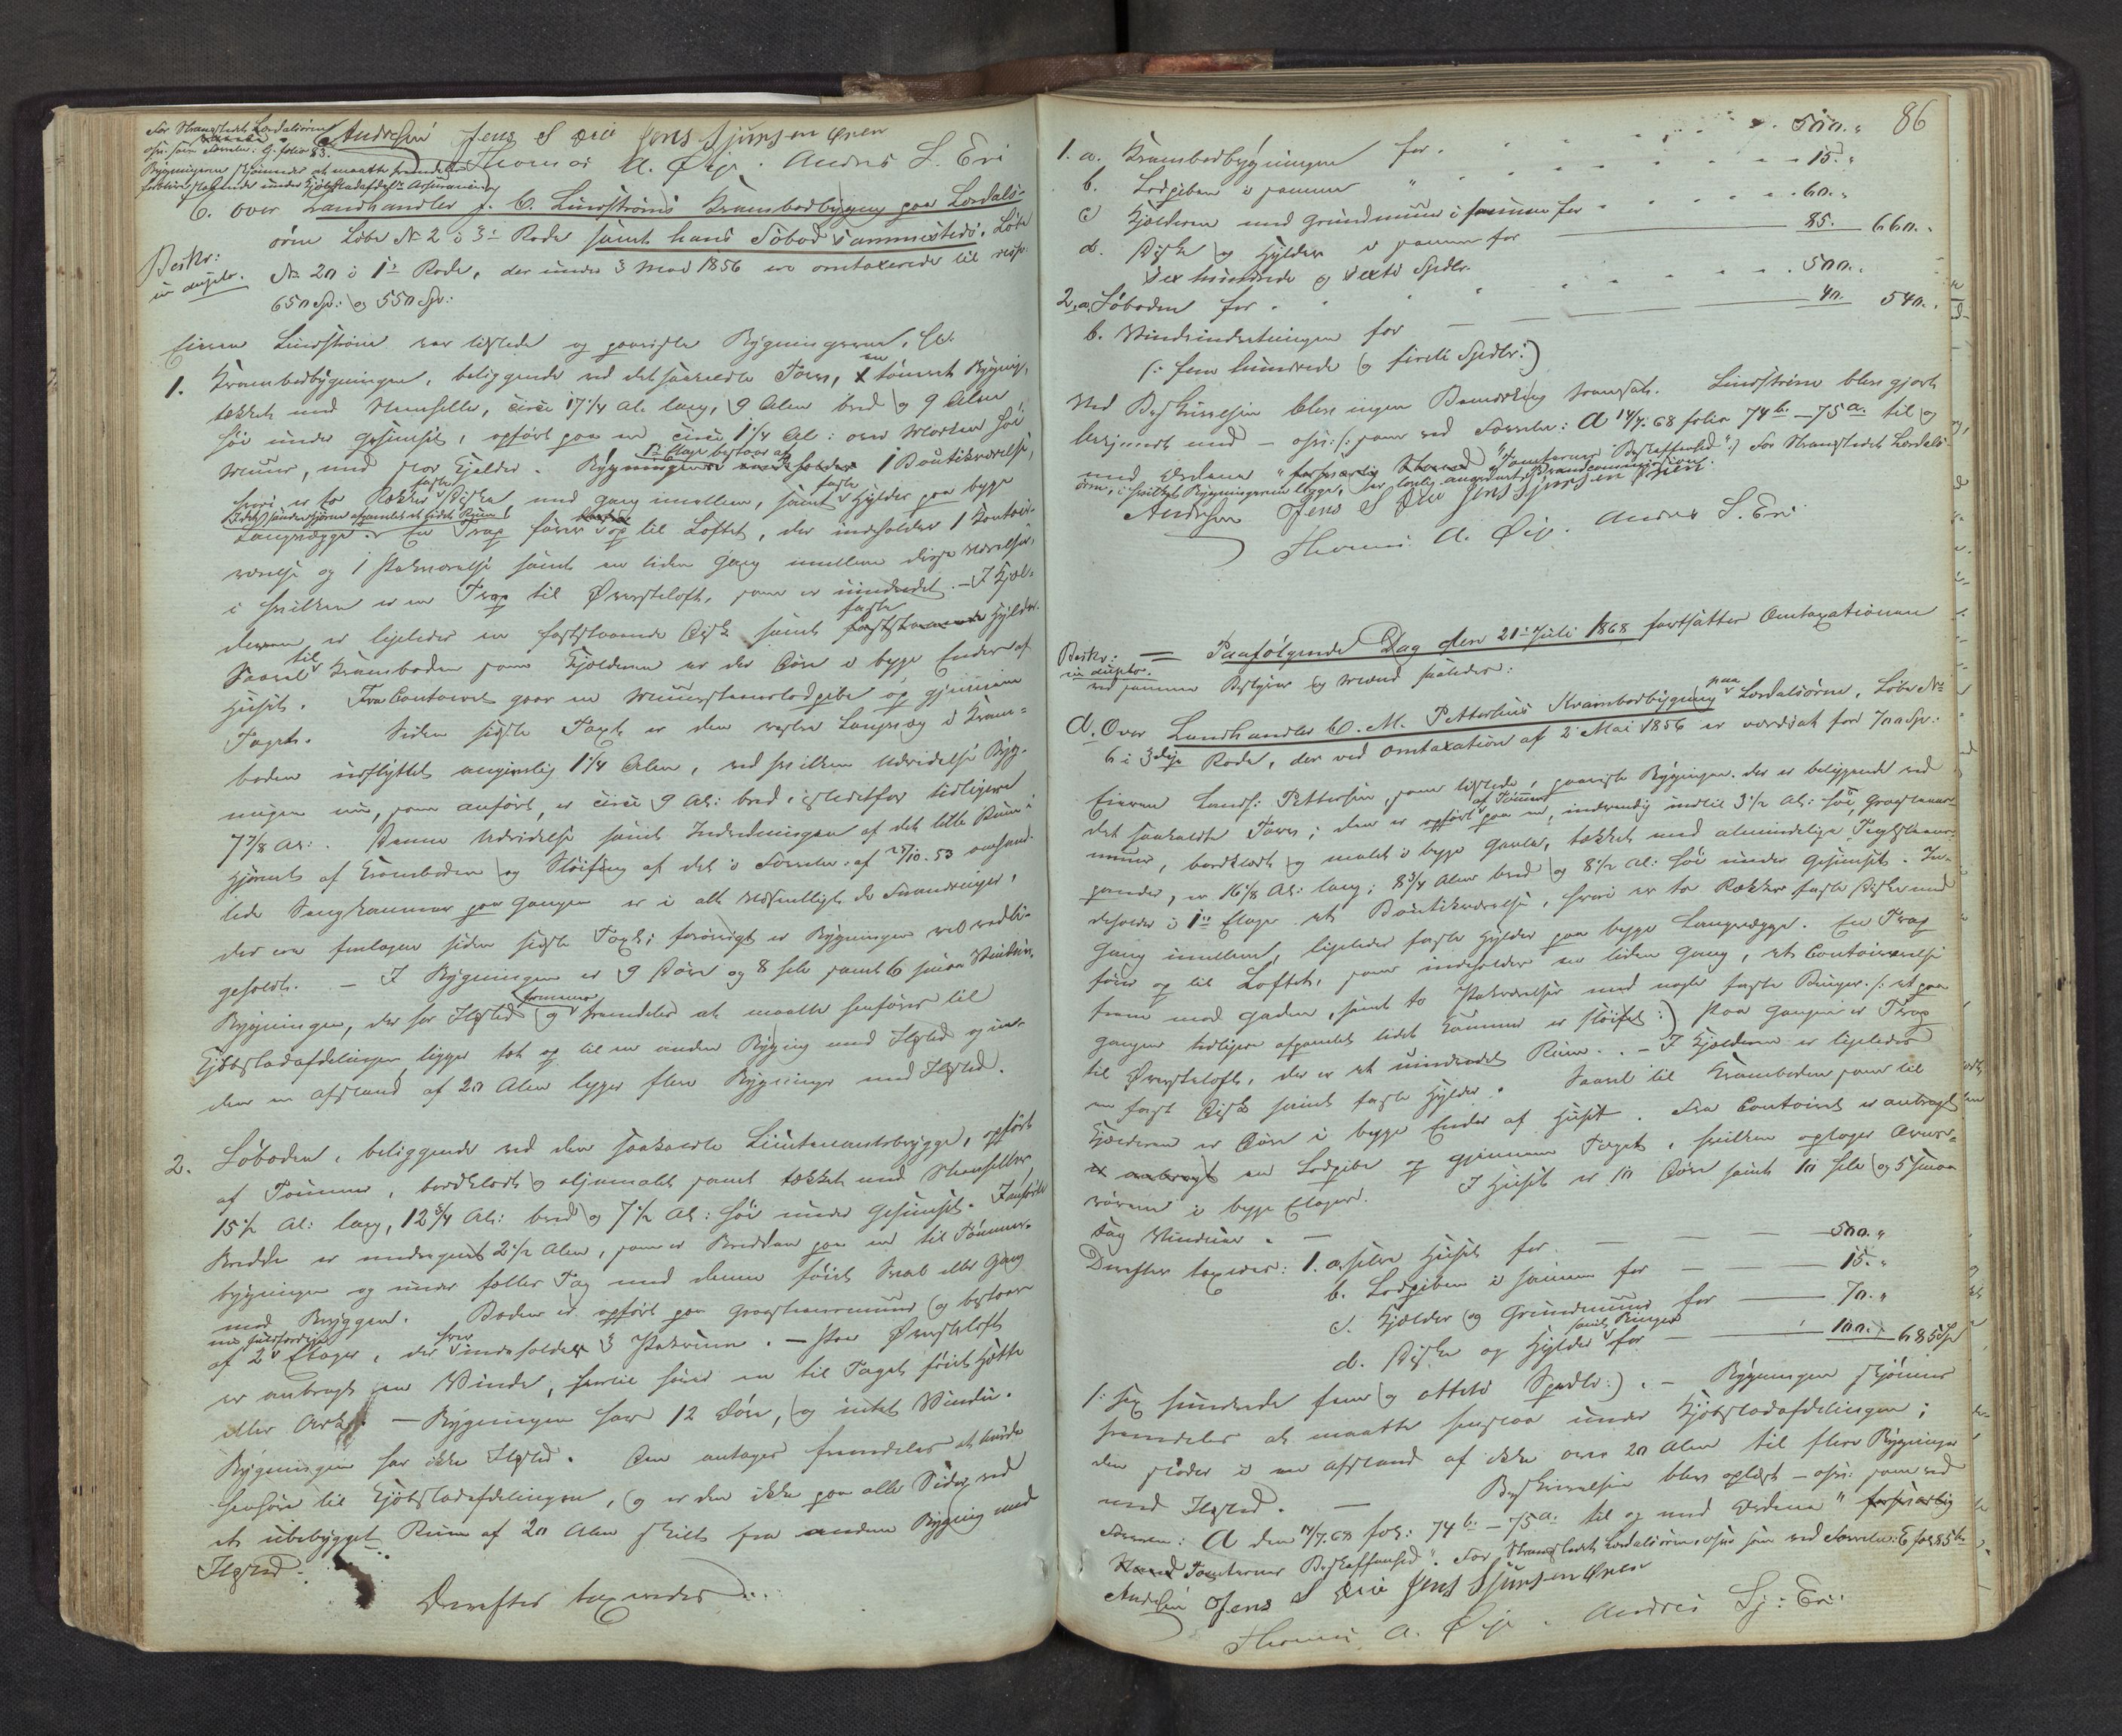 For Strangstedet Lærdalsøren
osv. som Forretn: G. folio 83.
Bygningerne skjønnes at maatte fremdeles
forblive staaende under Kjøbstadafdel: Assurancen
Andresen Jens S Øri Jens Sjursen Øren
Thomas A. Øije. Andres L. Eri
C. Over Landhandler J. C. Lindstrøms Krambodbygning paa Lærdals-
øren Løbe No 2 i 3die Rode samt hans Søbod sammesteds, Løbe
Beskr:
in duplo.
No 20 i 1ste Rode, der under 3 Mai 1856 ere omtaxerede til resp.
650 Sp: og 550 Sp:
Eieren Lindstrøm var tilstede og paaviste Bygningerne,
1. Krambodbygningen, beliggende ved det saakaldte Torv, en tømret Bygning,
tækket med Steenheller, circa 17 1/4 Al. lang, 9 Alen bred og 9 Alen
høi under Gesimset, opført paa en circa 1 1/4 Al: over Marken høi
Muur, med stor Kjelder. Bygningens 1ste Etage bestaar af 1 Boutikværelse,
hvori er to Rækker faste Diske med Gang imellem, samt faste Hylder paa begge
Langvægge. En Trap fører op til Loftet, der indeholder 1 Contoir-
værelse og 1 Pakværelse samt en liden Gang imellem disse Værelser,
i hvilken er en Trap til Øversteloft, som er uindredet. – I Kjæl-
deren er ligeledes en faststaaende Disk samt faste Hylder.
Saavel til Kramboden som Kjælderen er der Døre i begge Ender af
Huset. Fra Contoiret gaar en Muursteenslodpibe op gjennem
Taget. Siden sidste Taxt er den vestre Langvæg i Kram-
boden udflyttet omgivelig 1 1/4 Alen, ved hvilken Udvidelse Byg-
ningen nu, som anført, er circa 9 Al: bred, istedetfor tidligere
7 7/8 Al:. Denne Udvidelse samt Indredningen af det lille Rum i
Hjørnet af Kramboden og Sløifing af det i Forretn: af 25/10.53 omhand-
lede Sengkammer paa Gangen er i alt Væsentligt de Forandringer,
der ere foretagne siden sidste Taxt; forøvrigt er Bygningen vel vedli-
geholdt. – I Bygningen er 9 Døre og 8 hele samt 6 smaa Vinduer.
Bygningen, der har Ildsted og kommer fremdeles at maatte henføres til
Kjøbstadafdelingen ligger tæt op til en anden Bygning med Ildsted og in-
den en Afstand af 20 Alen ligger flere Bygninger med Ildsted.
2. Søboden, beliggende ved den saakaldte Lieutenantsbrygge, opført
af Tømmer, bordklædt og oljemalt samt tækket med Steenheller
15 1/2 Al: lang, 12 3/4 Al: bred og 7 1/2 Al: høi under Gesimset. I anførte
Bredde er medregnet 2 1/2 Alen, som er Bredden paa en til Tømmer-
bygningen og under fælles Tag med denne føiet Sval eller Gang
mod Bryggen. Boden er opført paa Graasteensmuur og bestaar
af 2 Etager, der hver indeholder 3 Pakrum. – Paa Øversteloft
er anbragt en Vinde, hvortil hører en til Taget føiet Hætte
eller Ark. – Bygningen har 12 Døre, og intet Vindu.
Bygningen har ikke Ildsted. Den antages fremdeles at burde
henføres til Kjøbstadafdelingen, og er den ikke paa alle Sider ved
et ubebygget Rum af 20 Alen skilt fra anden Bygning med
Ildsted.
Derefter taxeredes:
86
1. a. Krambodbygningen for 500. "
b. Lodpiben i samme " 15. "
c Kjælderen med Grundmuur i samme for 60. "
d. Diske og Hylder i samme for 85. 660. "
Sex hundrede og sexti Spdlr.
2. a. Søboden for 500. "
b. Vindeindretningen for 40. 540. "
(: fem hundrede og firti Spdlr:)
Ved Beskrivelsen blev ingen Bemærkning fremsat. Lindstrøm blev gjort
bekjendt med – osv: (: som ved Forretn: A 14/7.68 folio 74 b. – 75 a. til og
med Ordene " Tomternes Beskaffenhed":) For Strangstedet Lærdals-
øren, i hvilket Bygningerne ligge, er lovlig anordnet Brandcommission.
Andresen Jens S Øri Jens Sjursen Øren
Thomas A. Øije. Andres L. Eri
Beskr:
in duplo.
Paafølgende Dag den 21de Juli 1868 fortsattes Omtaxationen
ved samme Bestyrer og Mænd saaledes:
d. Over Landhandler C. M. Pettersens Krambodbygning paa Lærdalsøren, Løbe No
6 i 3die Rode, der ved Omtaxation af 2 Mai 1856 er værdsat for 700 Sp:
Eieren Landh: Pettersen, som tilstede, paaviste Bygningen. der er beliggende ved
det saakaldte Torv; den er opført af Tømmer paa en, indvendig indtil 3 1/2 Al: høi, Graasteens-
muur, bordklædt og malet i begge Gavler, tækket med almindelige Teglsteens-
pander, er 16 1/8 Al: lang; 8 3/4 Alen bred og 8 1/2 Al: høi under Gesimset. In-
deholder i 1ste Etage et Boutikværelse, hvori er to Rækker faste Diske med
Gang imellem, ligeledes faste Hylder paa begge Langvægge. En Trap
fører op til Loftet, som indeholder en liden Gang, et Contoirværelse
frem mod Gaden, samt to Pakværelser med nogle faste Binger. (: et paa
Gangen tidligere afpanelet lidet Kammer er sløifet:) Paa Gangen er Trap
til Øversteloft, der er et uindredet Rum. – I Kjælderen er ligeledes
en fast Disk samt faste Hylder. Saavel til Kramboden som til
Kjælderen er Døre i begge Ender af Huset. Fra Contoiret er anbragt
en Lodpibe op gjennem Taget, hvilken optager Ovns-
rørene i begge Etager. I Huset er 10 Døre samt 10 hele og 5 smaa
Fag Vinduer. –
Derefter taxeres: 1. a. selve Huset for 500. "
b. Lodpiben i samme for 15. "
c. Kjælder og Grundmuur for 70. "
d. Diske og Hylder samt Binger for 100. " 685 Sp
(: Sex hundrede fem og otteti Spdlr:). – Bygningen skjønnes
fremdeles at maatte henstaa under Kjøbstadafdelingen;
den støder i en Afstand af ikke over 20 Alen til flere Bygninger
med Ildsted. – Beskrivelsen blev oplæst – osv: som ved
Forretn: A den 14/7.68 fol: 74 b. – 75 a. til og med Ordene " forsvarlig
Stand Tomternes Beskaffenhed". For Strangstedet Lærdalsøren osv som ved Forretn: C fol 85 b
Andresen Jens S Øri Jens Sjursen Øren
Thomas A. Øije. Andres Sj: Eri